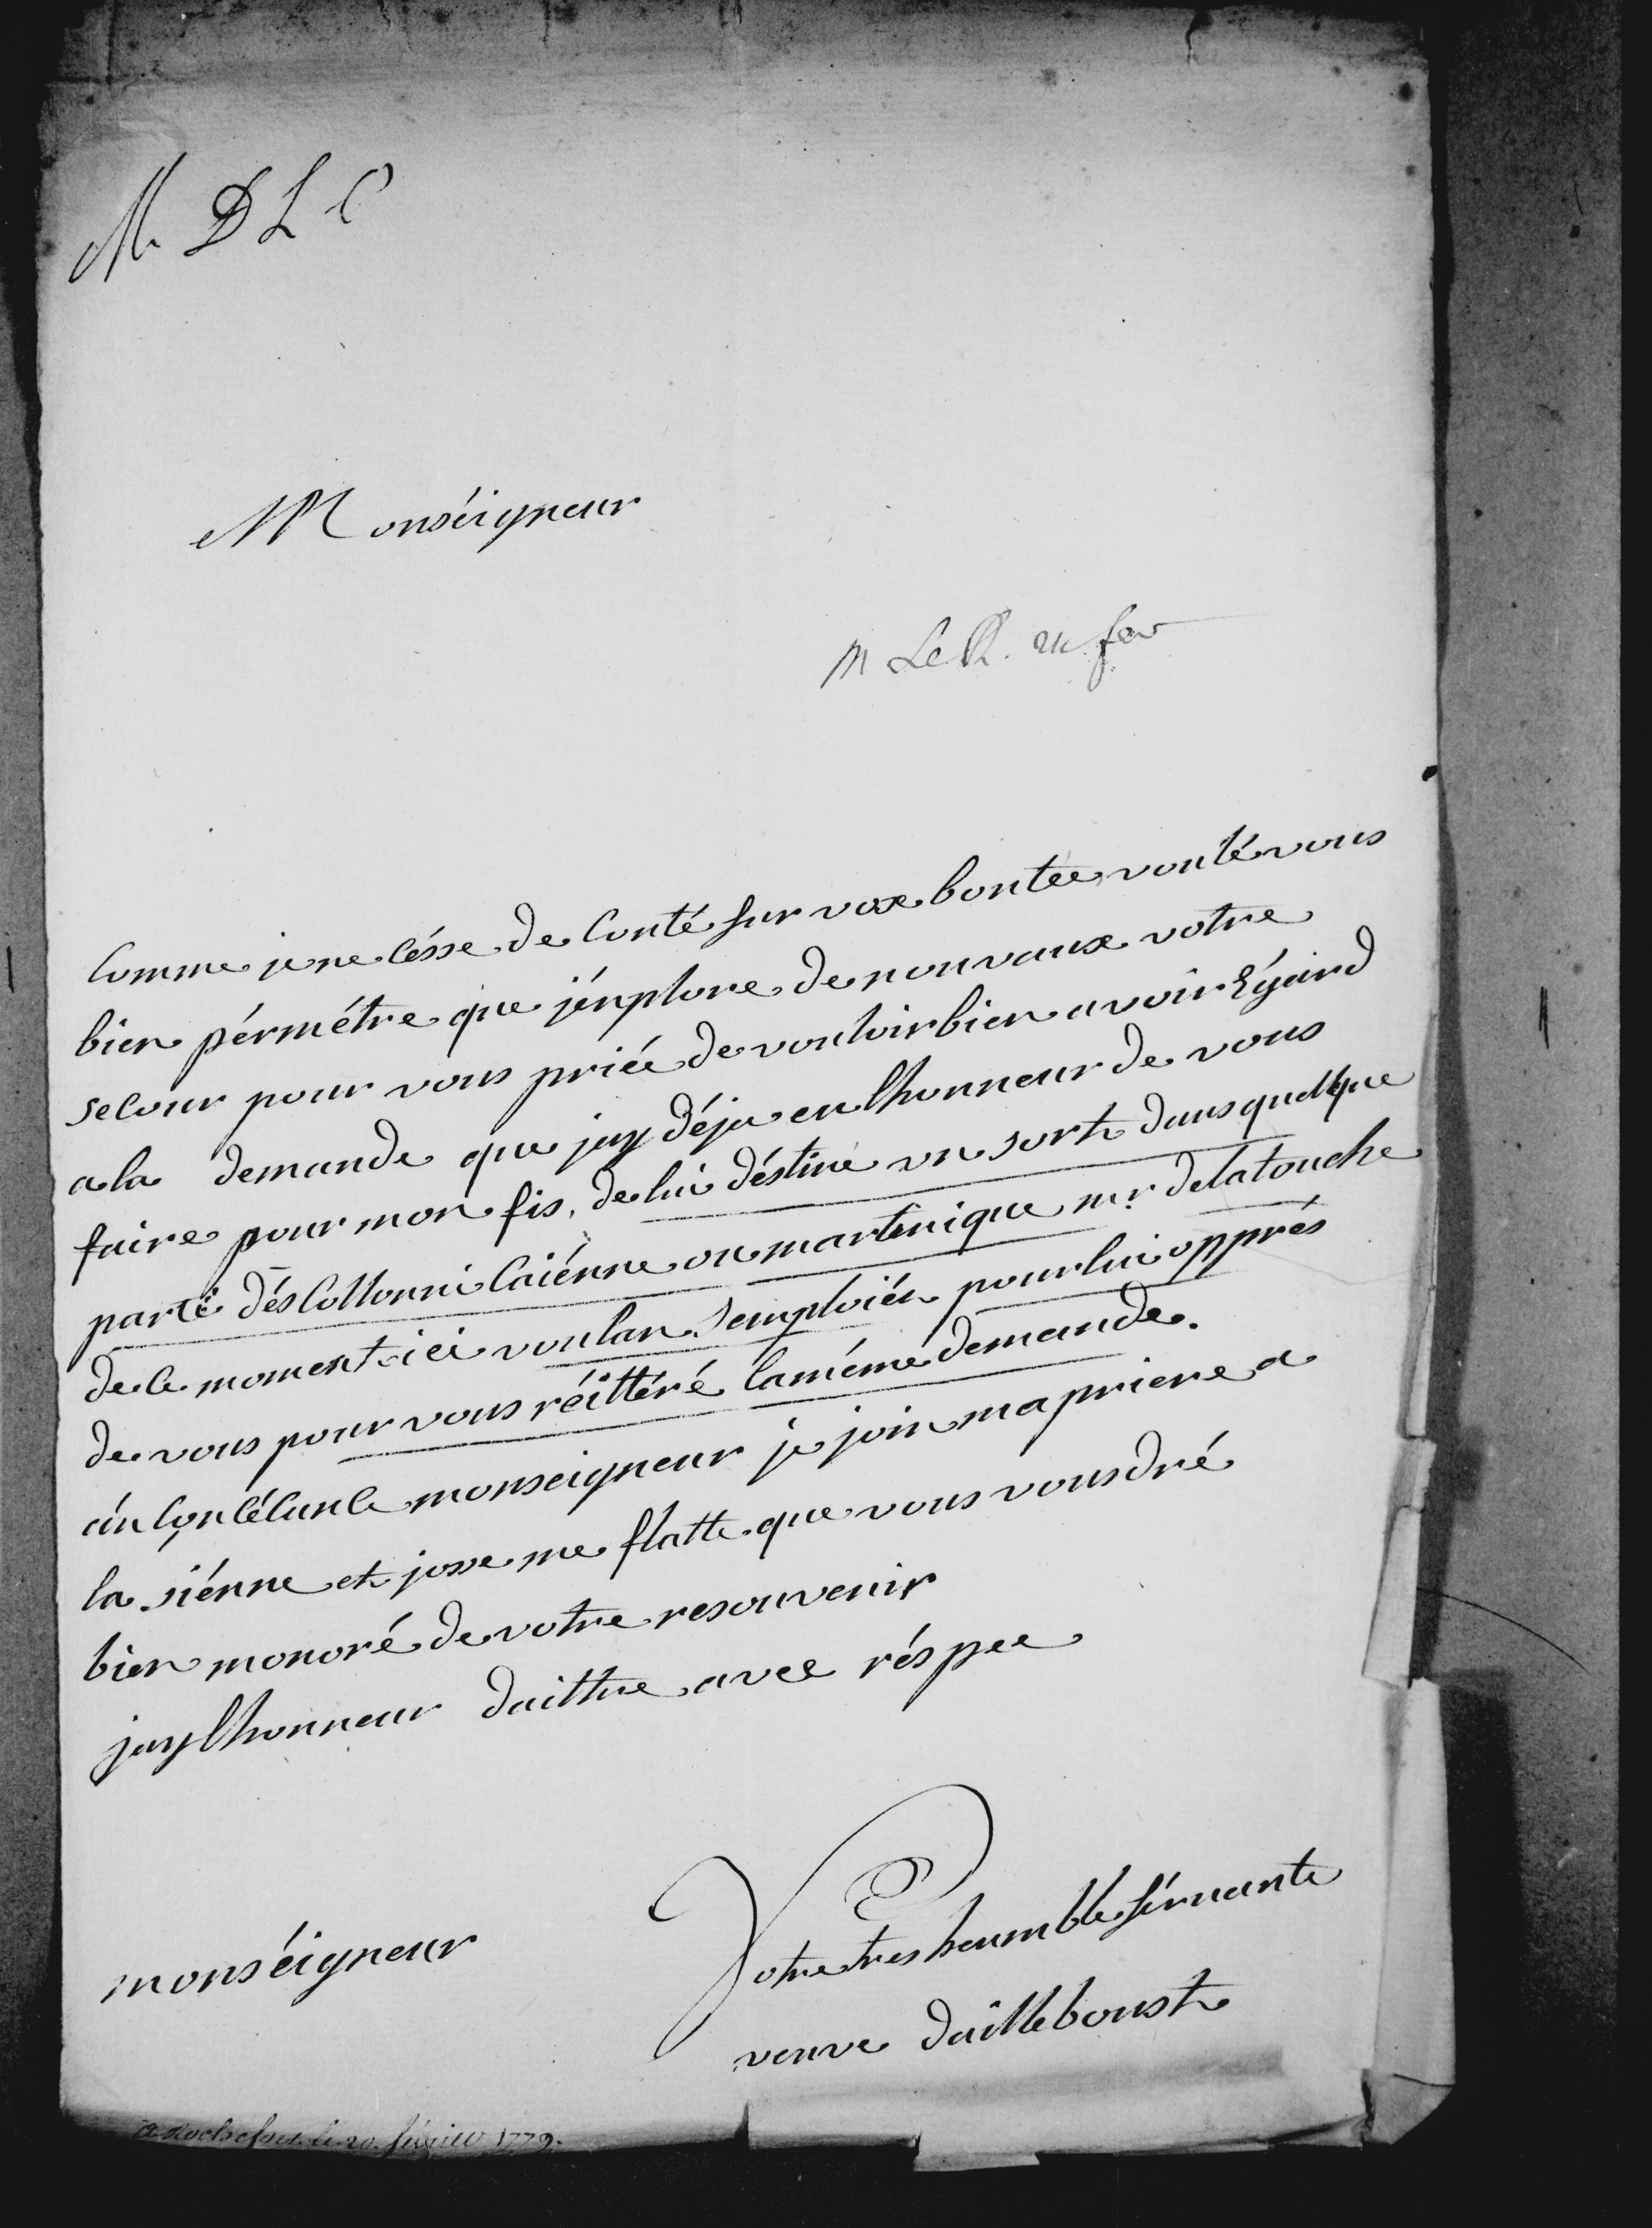 M D L C
Monséigneur
M Le R. fev
Comme je ne césse de Conté sur vox bontee voulé vous
bien pérmétre que j'énplore de nouvaux votre
secour pour vous priée de vouloir bien avoir Égard
a la demande que jay déja eu lhonneur de vous
faire pour mon fis, de lui déstiné un sort dans quelque
parti dés Collonni Caiénne ou martinique mr. de latouche
de ce moment ici voulan semploiér pour lui opprés
de vous pour vous réittéré la méme demande.
én Concécance monseigneur je join ma priere a
la siénne et josse me flatte que vous vousdré
bien monoré de votre resouvenir
jay lhonneur daittre avec réspec
monséigneur
Votre tres heumble sérvante
veuve dailleboust
a Rochefort le 20. février 1779.